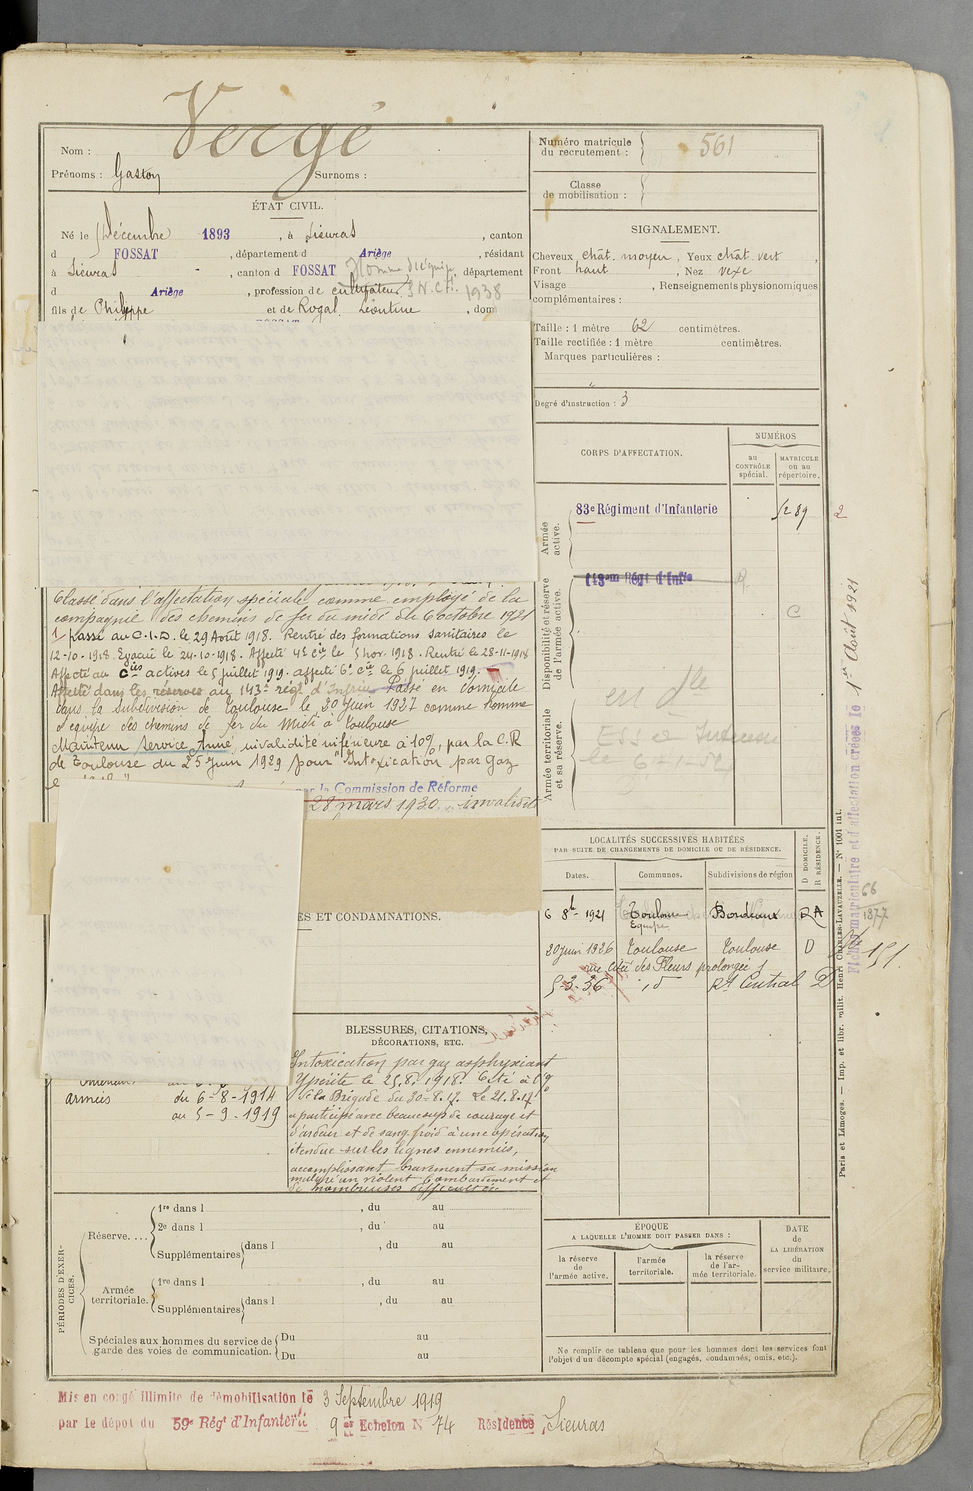 Vergé
Nom :
Prénoms : Gaston Surnoms :
ÉTAT CIVIL.
Né le 5 Décembre 1893, à Sieuras, canton
d FOSSAT, département d Ariège, résidant
à Sieuras, canton d FOSSAT, département
d Ariège, profession de cultivateur S.N.C.F. 1938
Homme d'équipe
fils de Philippe et de Rogal Léontine, domi
Classé dans l'affectation spéciale comme employé de la
compagnie des chemins de fer du midi du 6 octobre 1921
1 passé au C.I.D. le 29 Août 1918. Rentré des formations sanitaires le
12-10-1918. Evacué le 24-10-1918. Affecté 4e Cie le 5 nov. 1918. Rentré le 28-11-1918
Affecté au Cies actives le 5 juillet 1919. affecté 6e Cie le 6 juillet 1919.
Affecté dans les réserves au 143e régt d'Infrie Passé en domicile
dans la Subdivision de Toulouse le 20 Juin 1927 comme Homme
d'équipe des chemins de fer du Midi à Toulouse
Maintenu Service Armé, invalidité inférieure à 10%, par la C.R
de Toulouse du 25 Juin 1929 pour "Intoxication par gaz
la Commission de Réforme
28 mars 1930 invalidité
ES ET CONDAMNATIONS.
BLESSURES, CITATIONS,
DÉCORATIONS, ETC.
armées du 6-8-1914
au 5-9-1919
Intoxication par gaz asphyxiant
Ypérite le 25.8.1918. Cité à l'O
de la Brigade du 30-8-17. Le 21.8.17
a participé avec beaucoup de courage et
d'ardeur et de sang froid à une opération
étendue sur les lignes ennemies,
accomplissant bravement sa mission
malgré un violent bombardement et
de nombreuses difficultés
PÉRIODES D'EXERCICES.
Réserve....
1re dans l , du au
2e dans l , du au
Supplémentaires dans l , du au
Armée
territoriale.
1re dans l , du au
Supplémentaires dans l , du au
Spéciales aux hommes du service de
garde des voies de communication.
Du au
Du au
Mis en congé illimité de démobilisation le 3 Septembre 1919
par le dépôt du 59e Régt d'Infanterie 9 Echelon N 74 Résidence Sieuras
Numéro matricule
du recrutement : 561
Classe
de mobilisation :
SIGNALEMENT.
Cheveux chât. moyen, Yeux chât. vert
Front haut, Nez vexe
Visage , Renseignements physionomiques
complémentaires :
Taille : 1 mètre 62 centimètres.
Taille rectifiée : 1 mètre centimètres.
Marques particulières :
Degré d'instruction : 3
CORPS D'AFFECTATION.
NUMÉROS
au
CONTRÔLE
spécial.
MATRICULE
ou au
répertoire.
Armée
active.
83e Régiment d'Infanterie
2
Disponibilité et réserve
de l'armée active.
143em Régt d'Infie
R
C
Armée territoriale
et sa réserve.
en dle
LOCALITÉS SUCCESSIVES HABITÉES
PAR SUITE DE CHANGEMENTS DE DOMICILE OU DE RÉSIDENCE.
Dates. Communes. Subdivisions de région
D DOMICILE.
R RÉSIDENCE.
6 8bre 1921 Toulouse Bordeaux RA
Equipe
20 juin 1926 Toulouse Toulouse D
rue cité des Fleurs prolongée 1
5-3-36 id Rt Central D
ÉPOQUE
A LAQUELLE L'HOMME DOIT PASSER DANS :
la réserve
de
l'armée active.
l'armée
territoriale.
la réserve
de l'ar-
mée territoriale.
DATE
de
LA LIBÉRATION
du
service militaire.
Ne remplir ce tableau que pour les hommes dont les services font
l'objet d'un décompte spécial (engagés, condamnés, omis, etc.).
Fiches matriculaire et d'affectation créées le 1er Août 1921
66
1377
151.
Paris et Limoges. — Imp. et libr. milit. Henri CHARLES-LAVAUZELLE. — N° 1001 int.